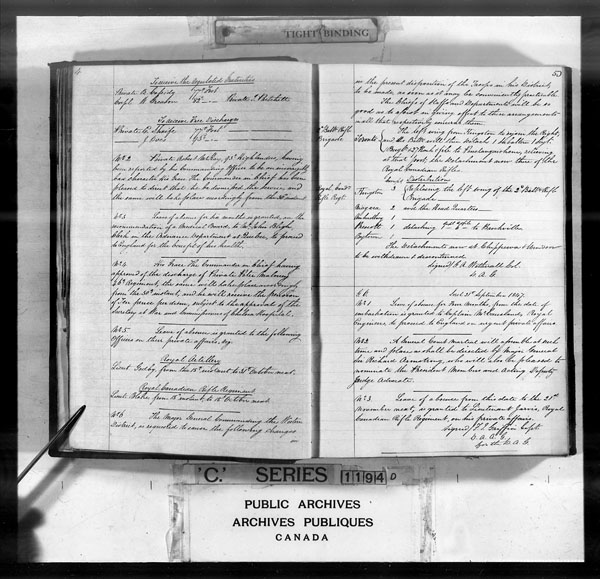 TIGHT BINDING
To receive the Regulated Gratuities
Private
77th Foot
Corpl.
93 "
Private
To receive Free Discharges
Private
77th Foot
J Ross
93rd
No 2 Private Robert McCoy, 93rd Highlanders, having
been reported by his Commanding Officer to be an
bad character His Exc. the Commander in Chief has been
pleased to direct that he be dismissed the service, and
the same will take place accordingly from the 30th instant
No 3 Leave of absence for six months is granted, on the
recommendation of a Medical Board to Mr. John Bligh,
Clerk in the Ordnance Department at Quebec, to proceed
to England for the benefit of his health.
No 4 His Exc. the Commander in Chief having
approved of the discharge of Private Peter Maloney
46th Regiment, the same will take place accordingly
from the 30th instant, and he will receive the pension
of per diem, subject to the approval of the
Secretary at War and Commissioners of Chelsea Hospital.
No 5 Leave of absence is granted to the following
Officers on their private affairs, viz
Royal Artillery
Lieut. from the instant to 31st October next.
Royal Canadian Rifle Regiment
Lieut. from instant, to 15 October next
No 6 The Major General Commanding the Western
District, is requested to cause the following changes
in
53
in the present disposition of the Troops in his District
to be made as soon as it may be conveniently practicable
The Chiefs of Staff and Departments will be so
good as to assist in giving effect to these arrangements
in all that respectively concerns them.
2nd Battn Rifle
Brigade
Toronto
The left wing from Kingston to rejoin the Right
and the Battn will then detach 1 Subaltern 1 Sergt
1 Bugler 27 Rank & file to Penetanguishene, relieving
at that post, the detachment now there of the
Royal Canadian Rifles
Royal Cand
Rifle Regt.
Comps Distribution
Kingston 3 Replacing the left wing of the 2nd Battn Rifle
Brigade
Niagara 2 and the Head Quarters
Amherstburg 1
Prescott 1 detaching to Brockville
Bytown 1
The Detachments now at Chippewa & Windsor
to be withdrawn & discontinued
Signed F. A. Wetherall Col.
D. A. G.
21st September 1847.
No 1 Leave of absence for from the date of
embarkation is granted to Captain McCausland, Royal
Engineers to proceed to England on urgent private affairs
No 2 A General Court Martial will assemble at such
time and place as shall be directed by Major General
Sir Richard Armstrong, who will also be pleased to
nominate the President Members and Acting Deputy
Judge Advocate.
No 3 Leave of absence from this date to the 20th
November next, is granted to Lieutenant Jarvis, Royal
Canadian Rifle Regiment, on his private affairs.
Signed Griffin Capt.
D. A. A. G.
for the D. A. G.
'C.' SERIES 1194 D
PUBLIC ARCHIVES
ARCHIVES PUBLIQUES
CANADA